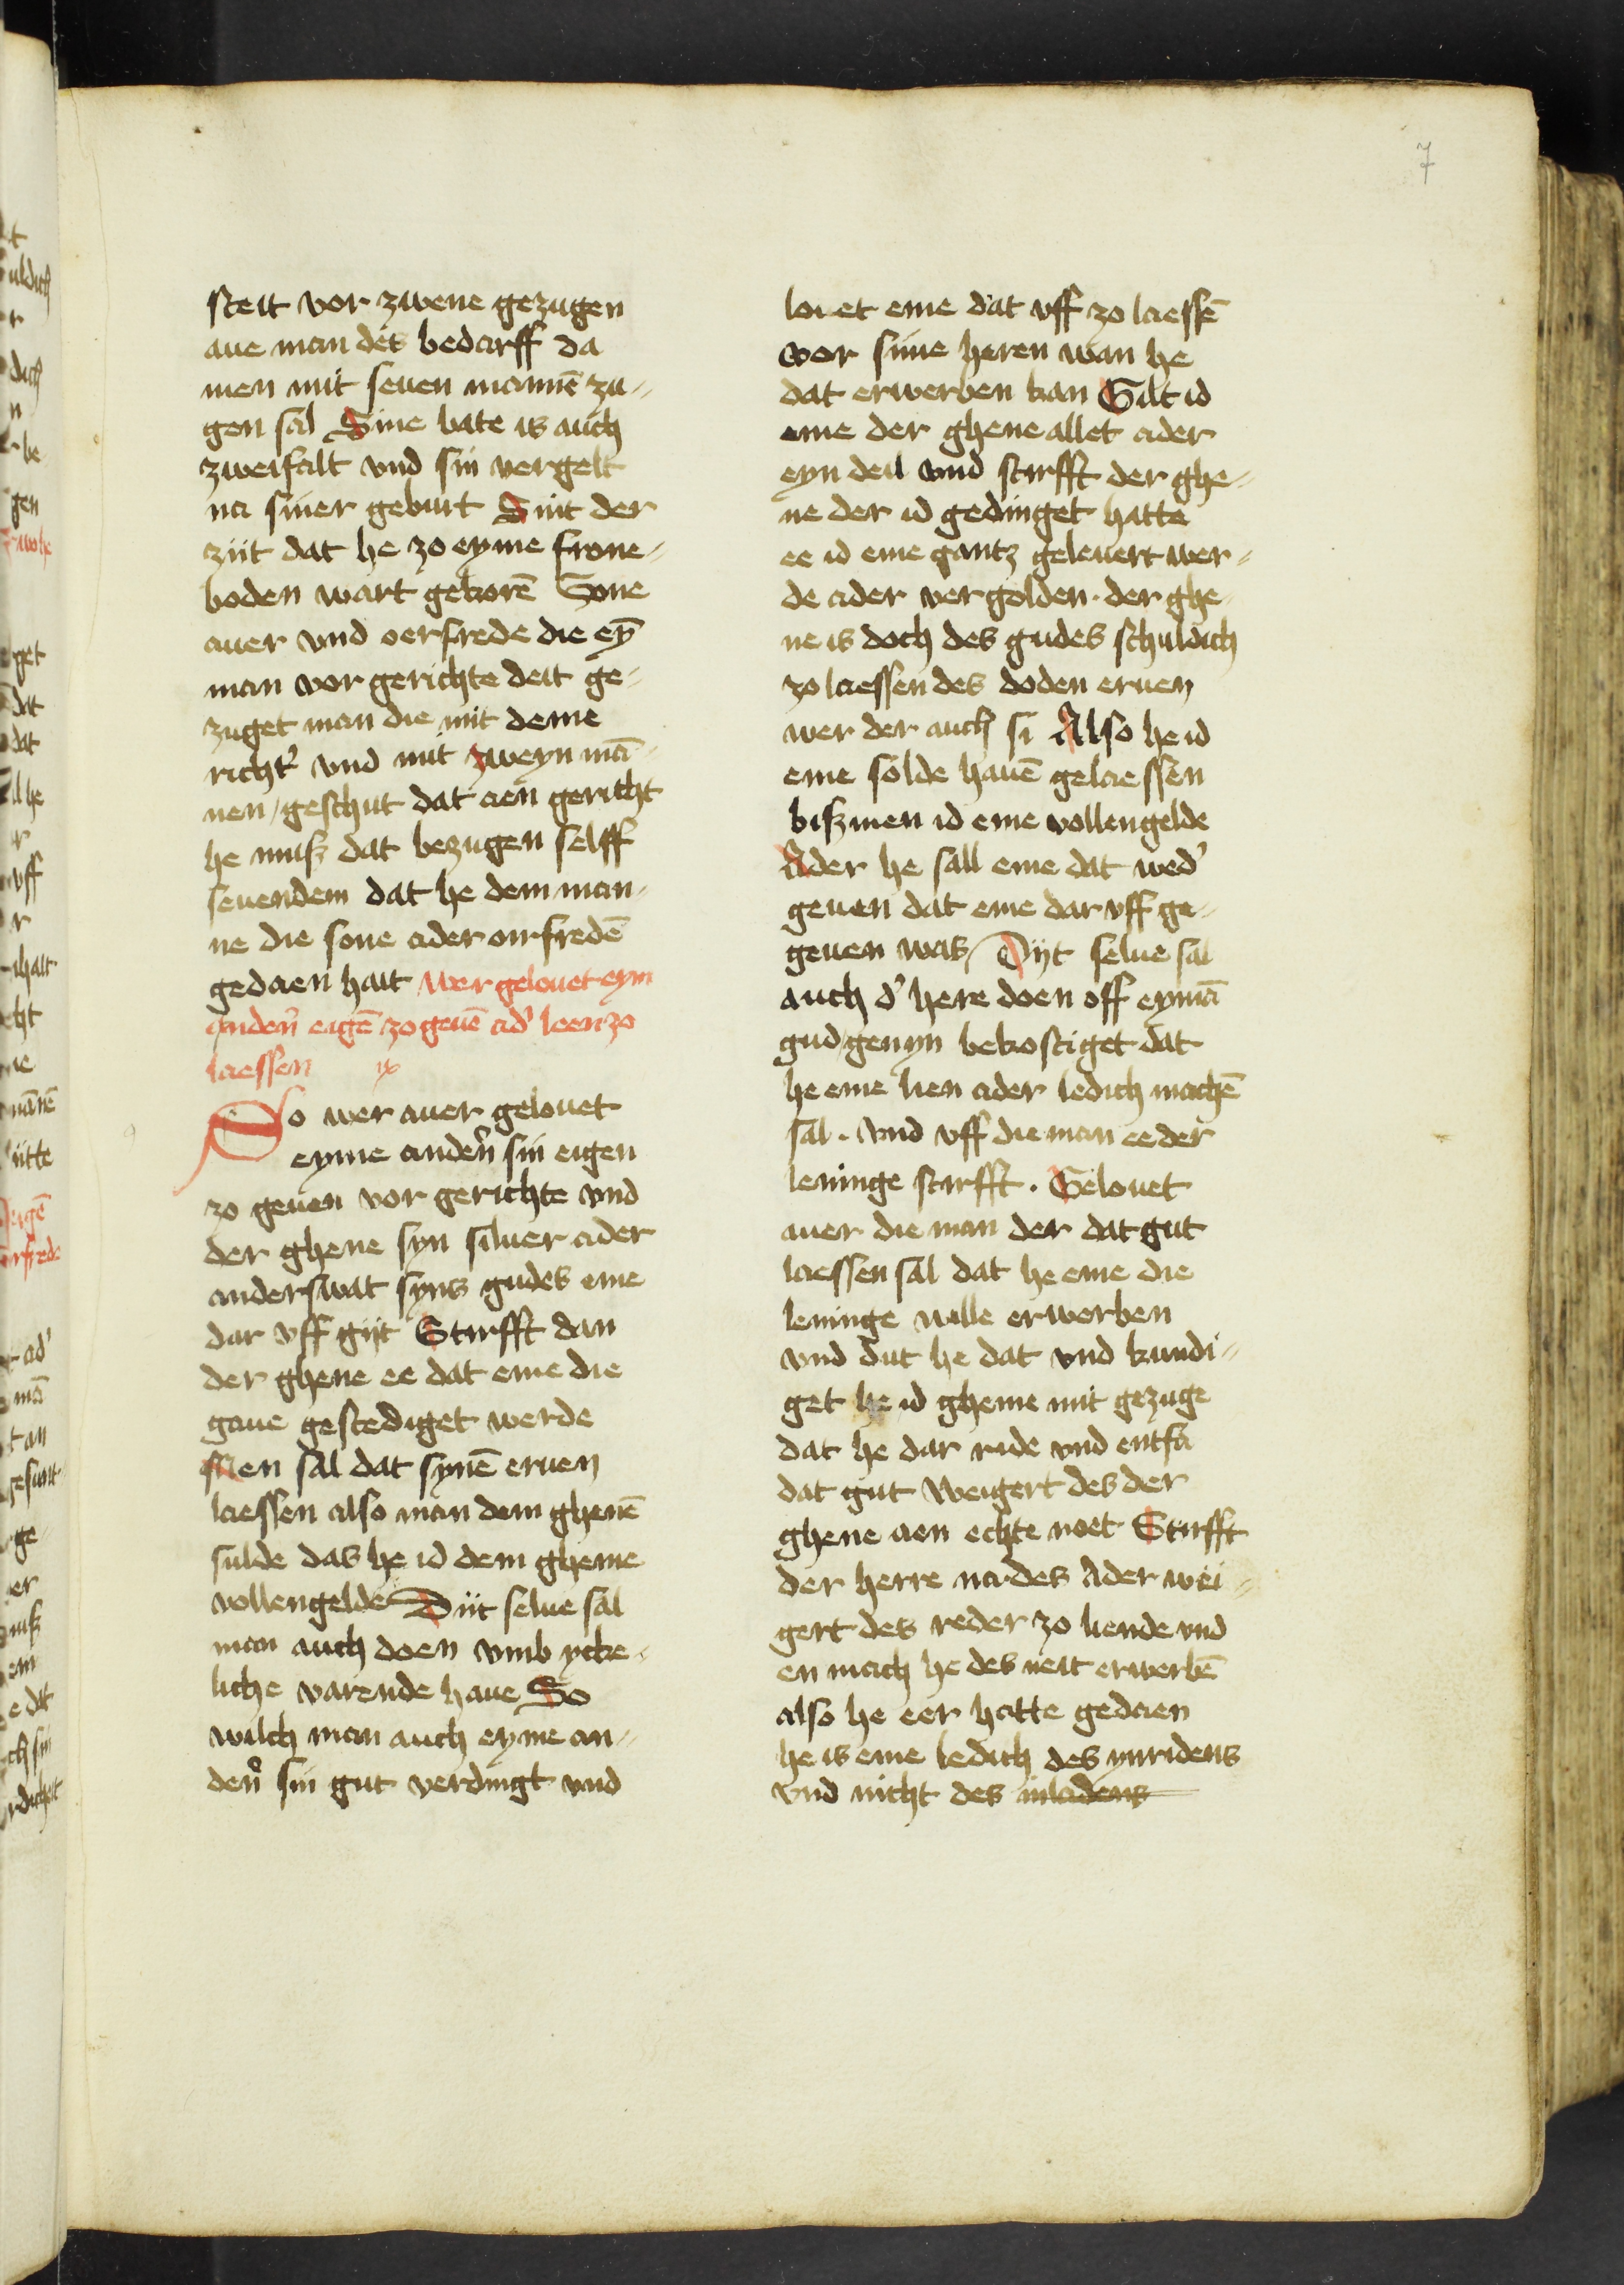 7
steit vor zwene gezugen
aue man des bedarff da
men mit seuen mannē zu-
gen sal Sine bate is auch
zweifalt vnd sin vergelt
na siner geburt Sint der
zijt dat he zo eyme frone-
boden wart gekorē Sone
auer vnd oerfrede die eȳ
man vor gerichte deit ge-
zuget man die mit deme
richt' vnd mit zweyn mā-
nen / geschut dat aen gericht
he musz dat bezugen selff
seuendem dat he dem man-
ne die sone ader orfredē
gedaen hait wer gelouet eym
anden' eigē zo geuē ad' leen zo
laessen ix
So wer auer gelouet
eyme anden' sin eigen
zo geuen vor gerichte vnd
der ghene syn siluer ader
anderswat syns gudes eme
dar vff gijt Stirfft dan
der ghene ee dat eme die
gaue gestediget werde
Men sal dat synē eruen
laessen also man dem ghenē
sulde das he id dem gheme
vollengelde Dijt selue sal
man auch doen vmb ycke-
liche varende haue So
wilch man auch eyme an-
den' sin gut verdingt vnd
louet eme dat vff zo laessē
vor sime heren wan he
dat erwerben kan Gilt id
eme der ghene allet ader
eyn deil vnd stirfft der ghe-
ne der id gedinget hatte
ee id eme gantz geleuert wer-
de ader vergolden. der ghe-
ne is doch des gudes schuldich
zo laessen des doden eruen
wer der auch si Also he id
eme solde hauē gelaessen
bisz men id eme vollengelde
Ader he sall eme dat wed'
geuen dat eme dar vff ge-
geuen was / Dijt selue sal
auch d' here doen off eymā
gud genyn bekostiget dat
he eme lien ader ledich machē
sal. vnd vff die man ee der
leninge stirfft. Gelouet
auer die man der dat gut
laessen sal dat he eme die
leninge wille erwerben
vnd dut he dat vnd kundi-
get he id gheme mit gezuge
dat he dar ride vnd entfa
dat gut weigert des der
ghene aen echte noet Stirfft
der herre na des Ader wei-
gert des reder zo liende vnd
en mach he des neit erwerbē
also he eer hatte gedaen
he is eme ledich des ynridens
vnd nicht des inladens